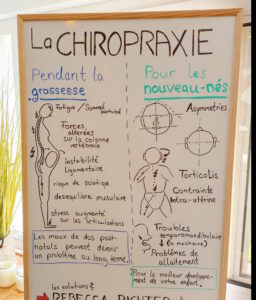 La CHIROPRAXIE
Pendant la
grossesse
Fatigue / Sommeil
perturbé
Forces
altérées
sur la colonne
vertébrale
instabilité
ligamentaire
risque de sciatique
desequilibre musculaire
stress augmenté
sur les articulations
Les maux de dos post-
natals peuvent devenir
un problème au long terme!
Pour les
nouveau-nés
Asymmetries
Torticolis
Contrainte
intra-utérine
Troubles
temporomandibulaire
(la machoire)
Problèmes de
allaitement
Pour le meilleur développe-
ment de votre enfant.
les solutions?
REBECCA RICHTER